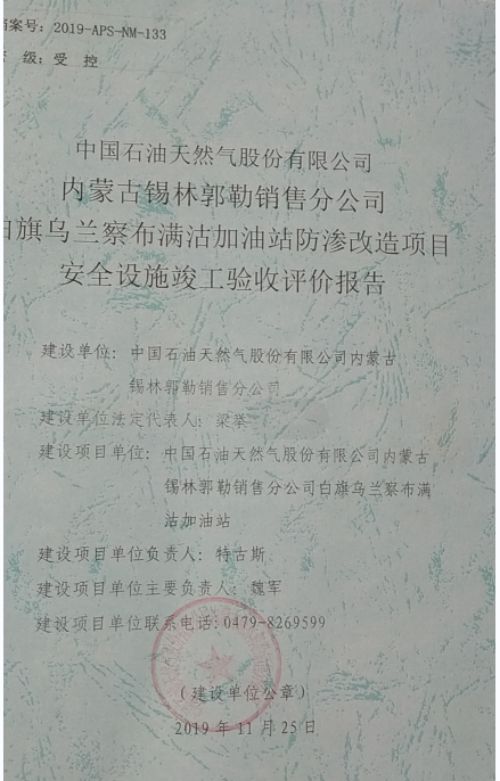 档案号: 2019-APS-NM-133
级: 受 控
中国石油天然气股份有限公司
内蒙古锡林郭勒销售分公司
白旗乌兰察布满沽加油站防渗改造项目
安全设施竣工验收评价报告
建设单位: 中国石油天然气股份有限公司内蒙古
锡林郭勒销售分公司
建设单位法定代表人: 梁举
建设项目单位: 中国石油天然气股份有限公司内蒙古
锡林郭勒销售分公司白旗乌兰察布满
沽加油站
建设项目单位负责人: 特古斯
建设项目单位主要负责人: 魏军
建设项目单位联系电话: 0479-8269599
(建设单位公章)
2019 年 11 月 25 日